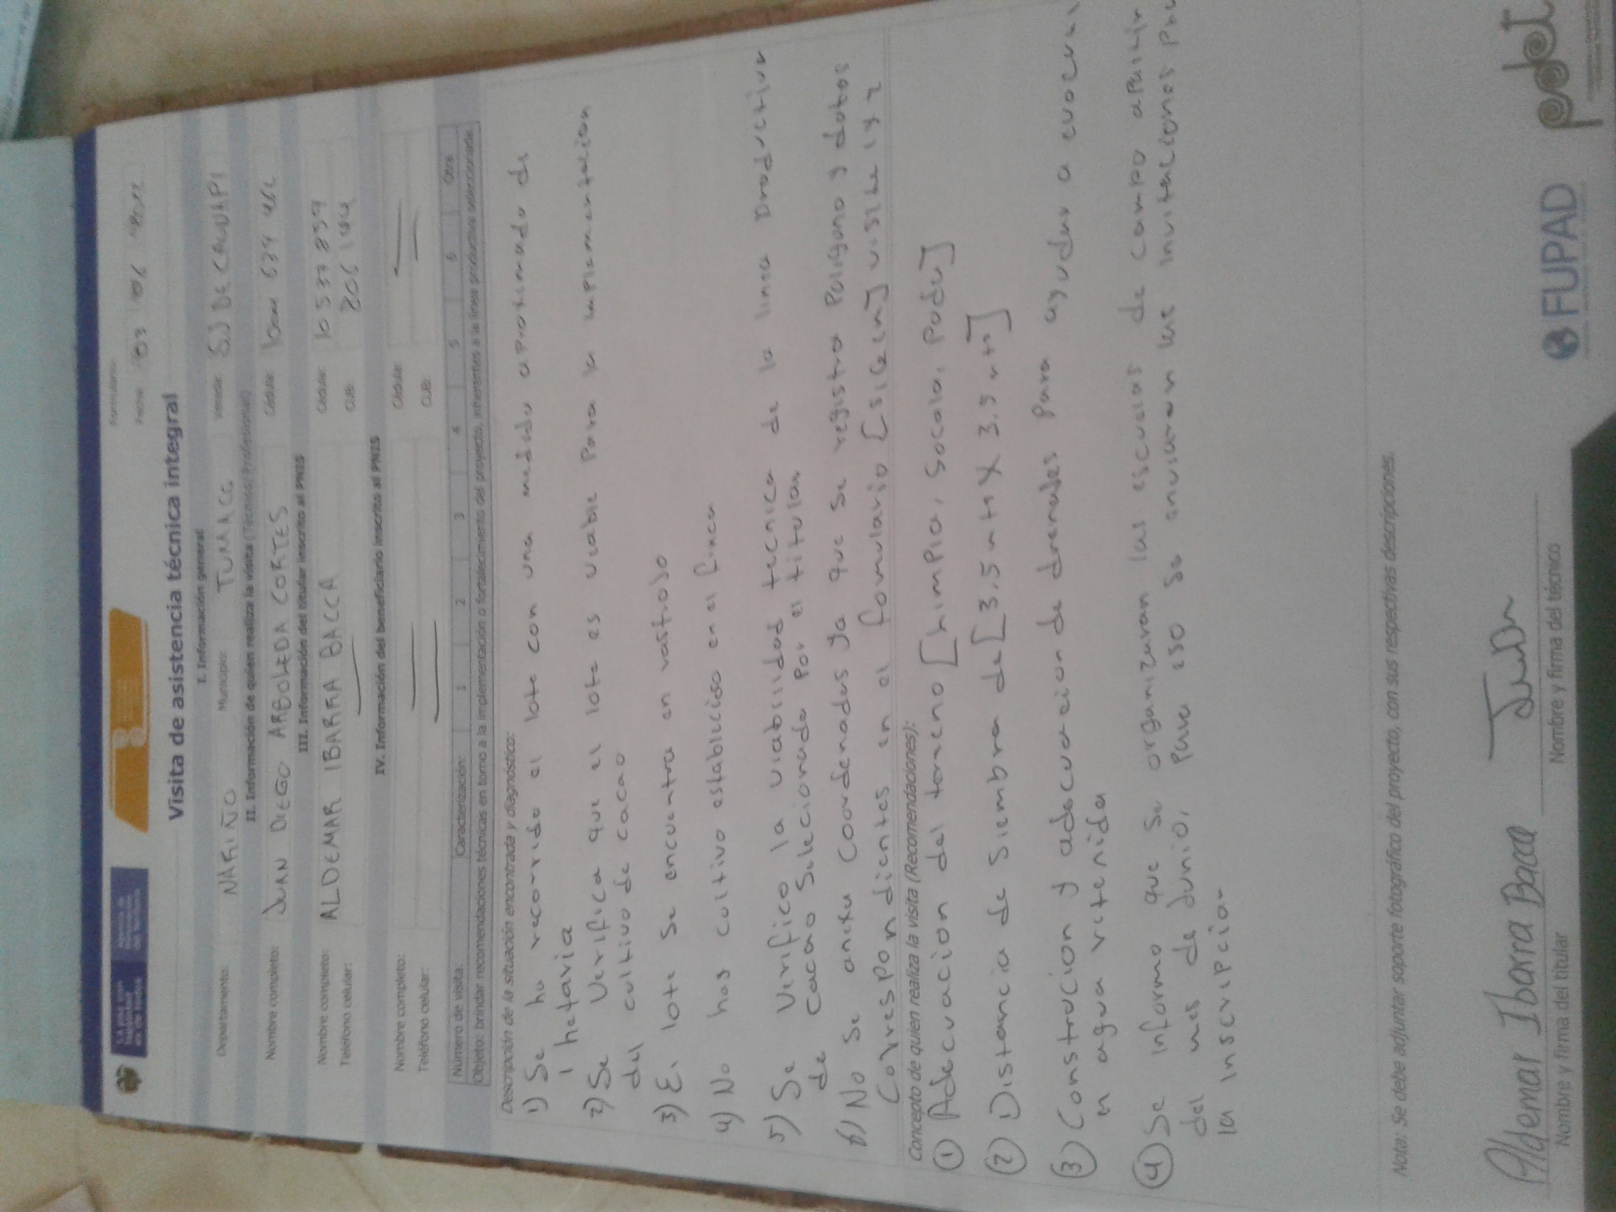 Formulario:
Fecha: 03 06 2022
Visita de asistencia técnica integral
I. Información general
Departamento: NARIÑO Municipio: TUMACO Vereda: SJ DE CAUNAPI
II. Información de quien realiza la visita (Técnico/Profesional)
Nombre completo: JUAN DIEGO ARBOLEDA CORTES Cédula:
III. Información del titular inscrito al PNIS
Nombre completo: ALDEMAR IBARRA BACCA Cédula: 10537859
Teléfono celular: CUB: 206144
IV. Información del beneficiario inscrito al PNIS
Nombre completo: Cédula:
Teléfono celular: CUB:
Número de visita: Caracterización: 1 2 3 4 5 6 Otra
Objeto: brindar recomendaciones técnicas en torno a la implementación o fortalecimiento del proyecto, inherentes a la línea productiva seleccionada.
Descripción de la situación encontrada y diagnóstico:
1) Se ha recorrido el lote con una medida aproximado de
1 hetaria
2) Se verifica que el lote es viable para la implementación
del cultivo de cacao
3) El lote se encuentra en rastrojo
4) No hay cultivo establecido en el finca
5) Se Verifico la viabilidad tecnica de la linea Productiva
de Cacao Selecionada Por el titular
6) No se anexa Coordenadas ya que se registra Poligono y datos
Correspondientes en el formulario [SIGCIN] visita 1 y 2
Concepto de quien realiza la visita (Recomendaciones):
① Adecuación del terreno [Limpia, Socala, Poda]
② Distancia de Siembra de [3.5 mts X 3.5 mts]
③ Construcion y adecuacion de drenajes para ayudar a evacuar
el agua retenida
④ Se informo que se organizaran las escuelas de campo apartir
del mes de Junio, para eso se enviaran las invitaciones
la inscripcion
Nota: Se debe adjuntar soporte fotográfico del proyecto, con sus respectivas descripciones.
Aldemar Ibarra Bacca
Nombre y firma del titular Nombre y firma del técnico
FUPAD pdet